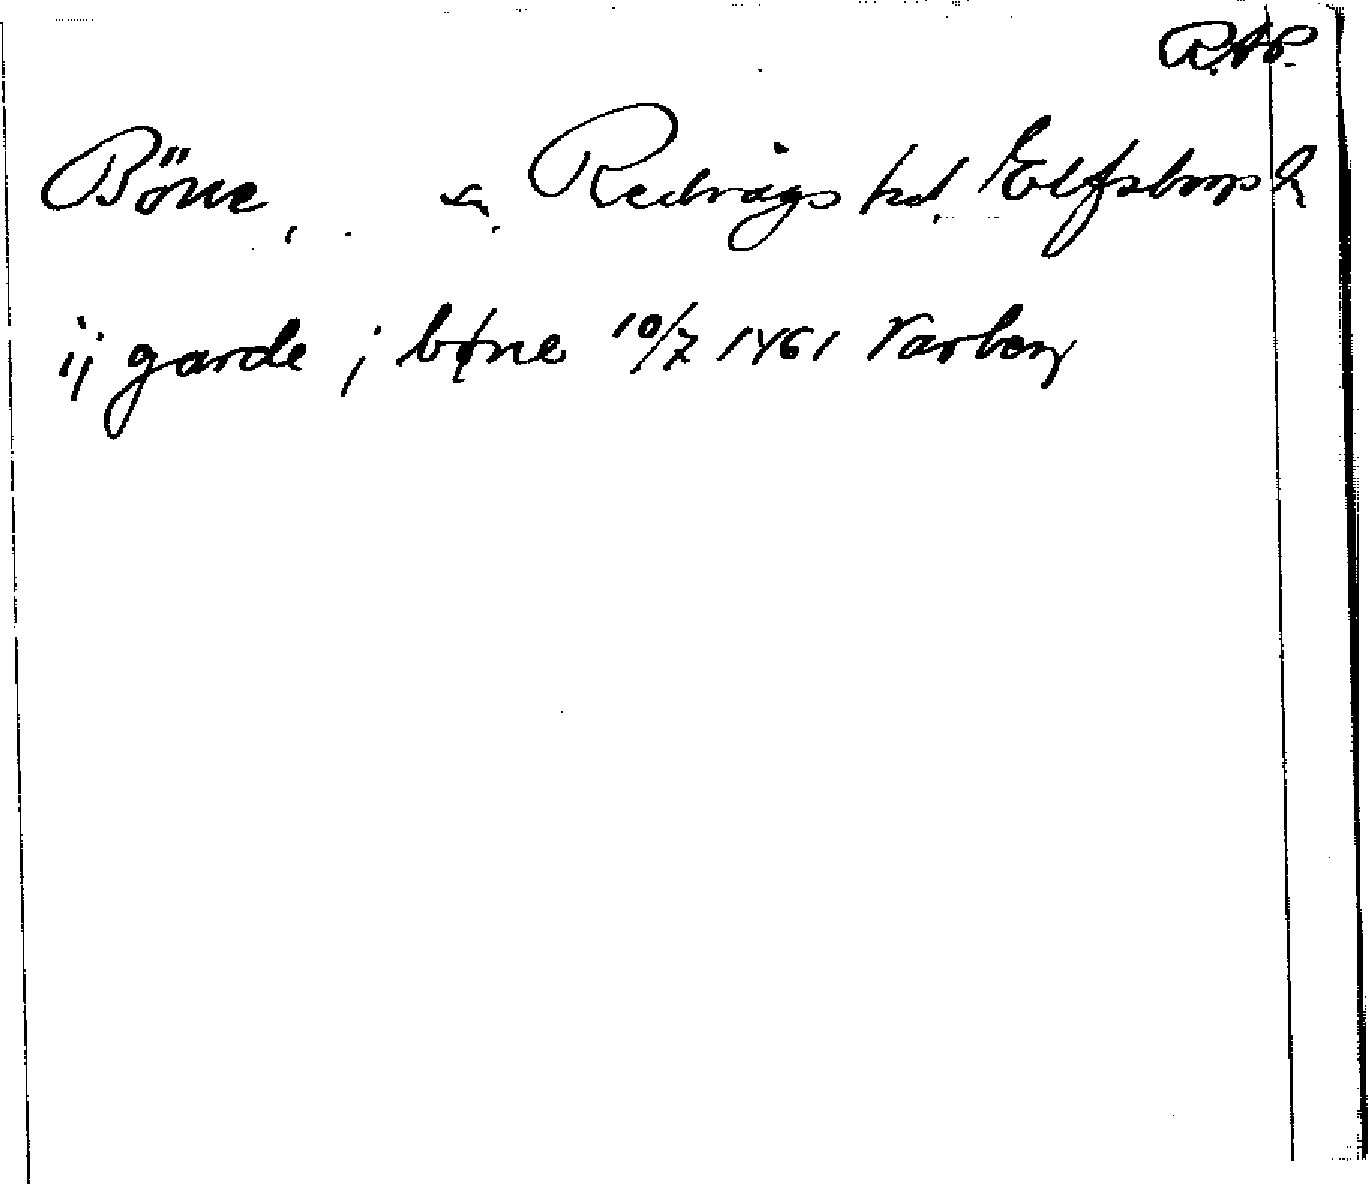 R.A.P.
Böne, sn. Redvägs hd. Elfsborgs l
ij garde j bøne 10/7 1461 Varberg